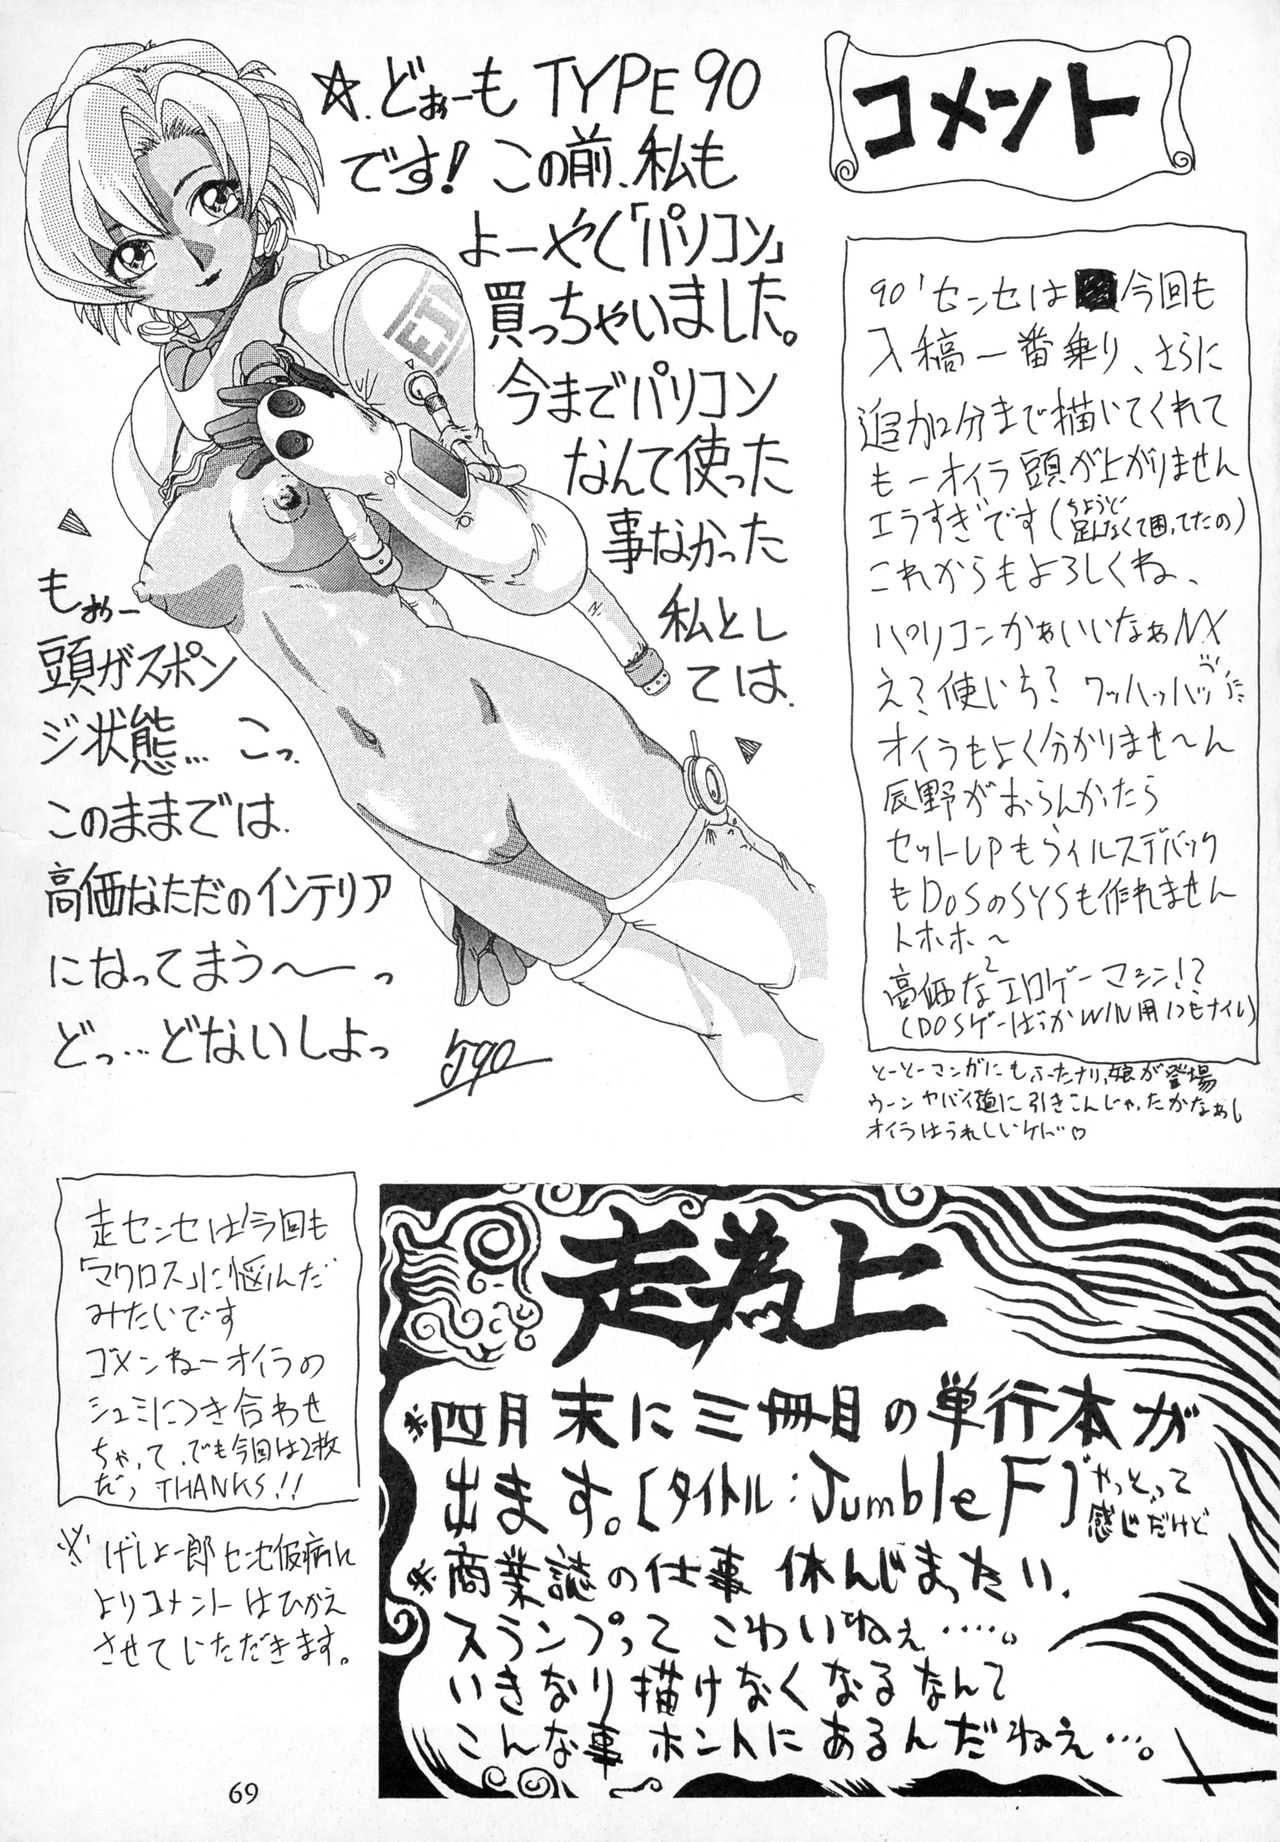 コメント
☆.どぉーも TYPE90
です!この前、私も
よーやく「パソコン」
買っちゃいました。
今までパソコン
なんて使った
事なかった
私とし
ては、
もぉー
頭がスポン
ジ状態…こっ、
このままでは、
高価なただのインテリア
になってまう〜っ
どっ…どないしよっ
T90
EI
90'センセは今回も
入稿一番乗り、さらに
追加2分まで描いてくれて
もーオイラ頭が上がりません
エラすぎです(ちょうど足んなくて困ってたの)
これからもよろしくね、
パソコンかぁいいなぁNX
え?使いち?ワッハッハッ
オイラもよく分かりませ〜ん
辰野がおらんかたら
セットUPもウィルスデバック
もDOSのSYSも作れません
トホホ〜
高価なエロゲーマシン!?
(DOSゲーばっかWIN用1つもナイし)
とーとーマンガにもふたナリっ娘が登場
ウーンヤバイ道に引きこんじゃったかなぁし
オイラはうれしいケド♡
走センセは今回も
「マクロス」に悩んだ
みたいです
ゴメンねーオイラの
シュミにつき合わせ
ちゃって、でも今回は2枚
だっTHANKS!!
※げしょ一郎センセ仮病に
よりコメントはひかえ
させていただきます。
走為上
※四月末に三冊目の単行本が
出ます。[タイトル:Jumble F]やっとって感じだけど
※商業誌の仕事 休んじまったい、
スランプって こわいねぇ……
いきなり描けなくなるなんて
こんな事ホントにあるんだねぇ…。
69